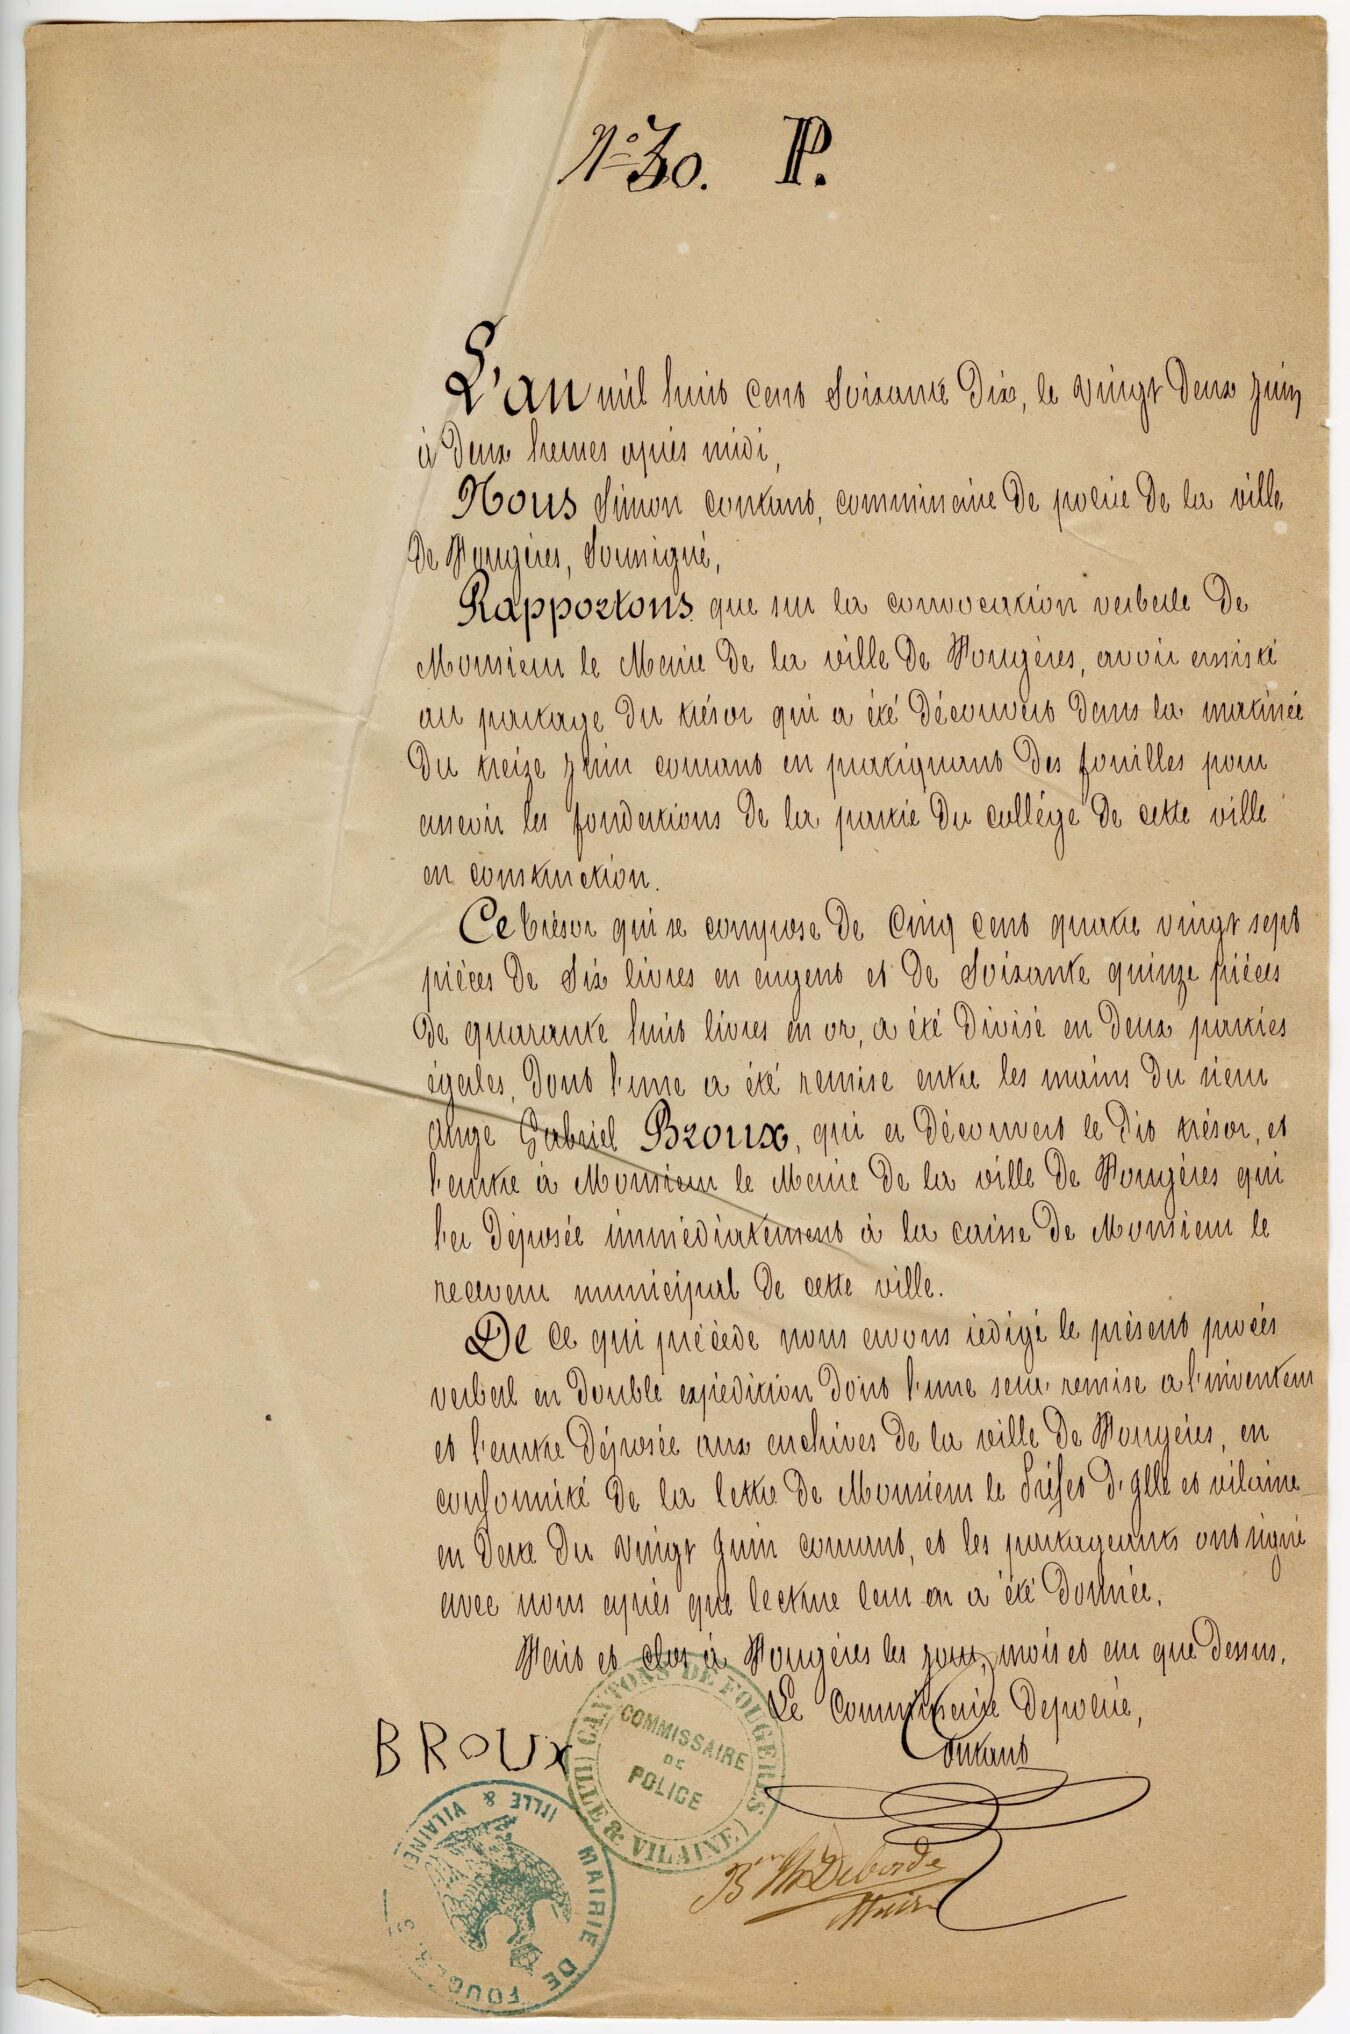 N° 30. P.
L'an mil huit cent soixante dix, le vingt deux juin
à deux heures après midi,
Nous Simon Contant, commissaire de police de la ville
de Fougères, soussigné,
Rapportons que sur la convocation verbale de
Monsieur le Maire de la ville de Fougères, avoir assisté
au partage du trésor qui a été découvert dans la matinée
du treize juin courant en pratiquant des fouilles pour
asseoir les fondations de la partie du collége de cette ville
en construction.
Ce trésor qui se compose de cinq cent quatre vingt sept
pièces de six livres en argent et de soixante quinze pièces
de quarante huit livres en or, a été divisé en deux parties
égales, dont l'une a été remise entre les mains du sieur
Ange Gabriel Broux, qui a découvert le dit trésor, et
l'autre à Monsieur le Maire de la ville de Fougères qui
l'a déposée immédiatement à la caisse de Monsieur le
receveur municipal de cette ville.
De ce qui précède nous avons rédigé le présent procès
verbal en double expédition dont l'une sera remise a l'inventeur
et l'autre déposée aux archives de la ville de Fougères, en
conformité de la lettre de Monsieur le Préfet d'Ille et vilaine
en date du vingt juin courant, et les partageants ont signé
avec nous après que lecture leur en a été donnée.
Fait et clos à Fougères les jour, mois et an que dessus.
Le Commissaire de police,
BROUX
Contant
CANTONS DE FOUGERES
(ILLE & VILAINE)
COMMISSAIRE
DE
POLICE
MAIRIE DE FOUGERES
ILLE & VILAINE
Deborde
Maire